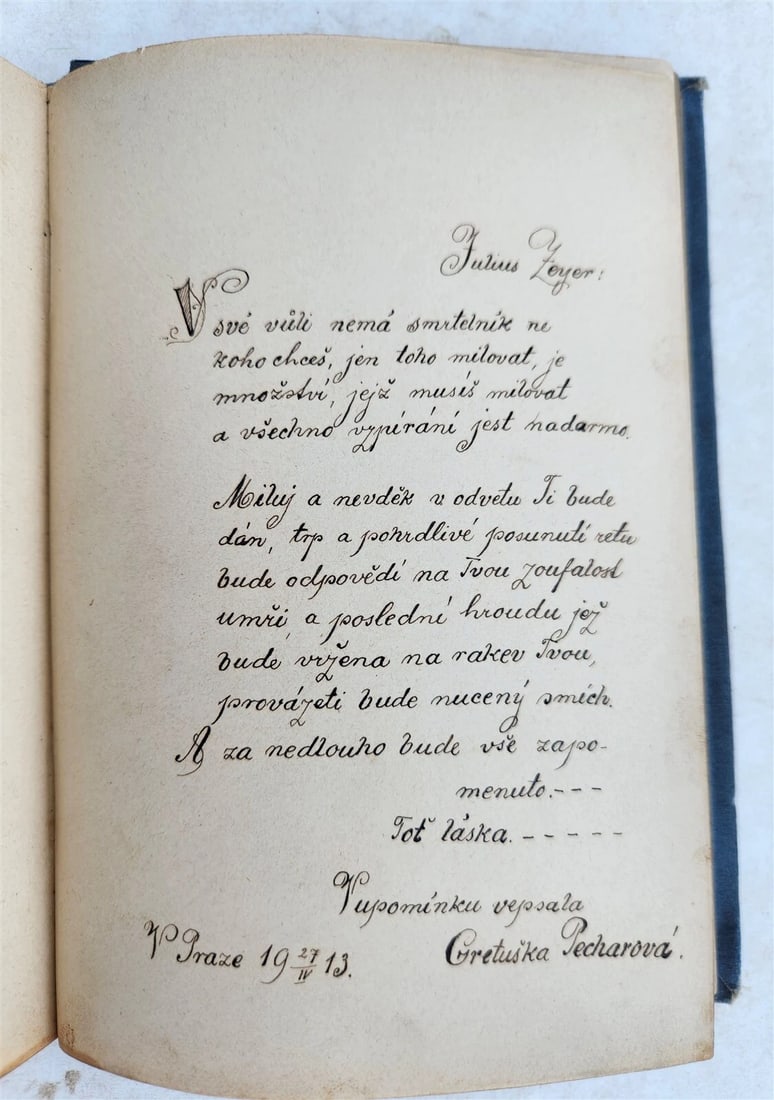 Julius Zeyer:
V své vůli nemá smrtelník ne
koho chceš, jen toho milovat, je
množství, jejž musíš milovat
a všechno vzpírání jest nadarmo.
Miluj a nevděk v odvetu Ti bude
dán, trp a pohrdlivé posunutí retu
bude odpovědí na Tvou zoufalost
umři, a poslední hroudu jež
bude vržena na rakev Tvou,
provázeti bude nucený smích.
A za nedlouho bude vše zapo-
menuto.---
Toť láska.-----
V upomínku vepsala
Gretuška Pecharová.
V Praze 19 27/IV 13.